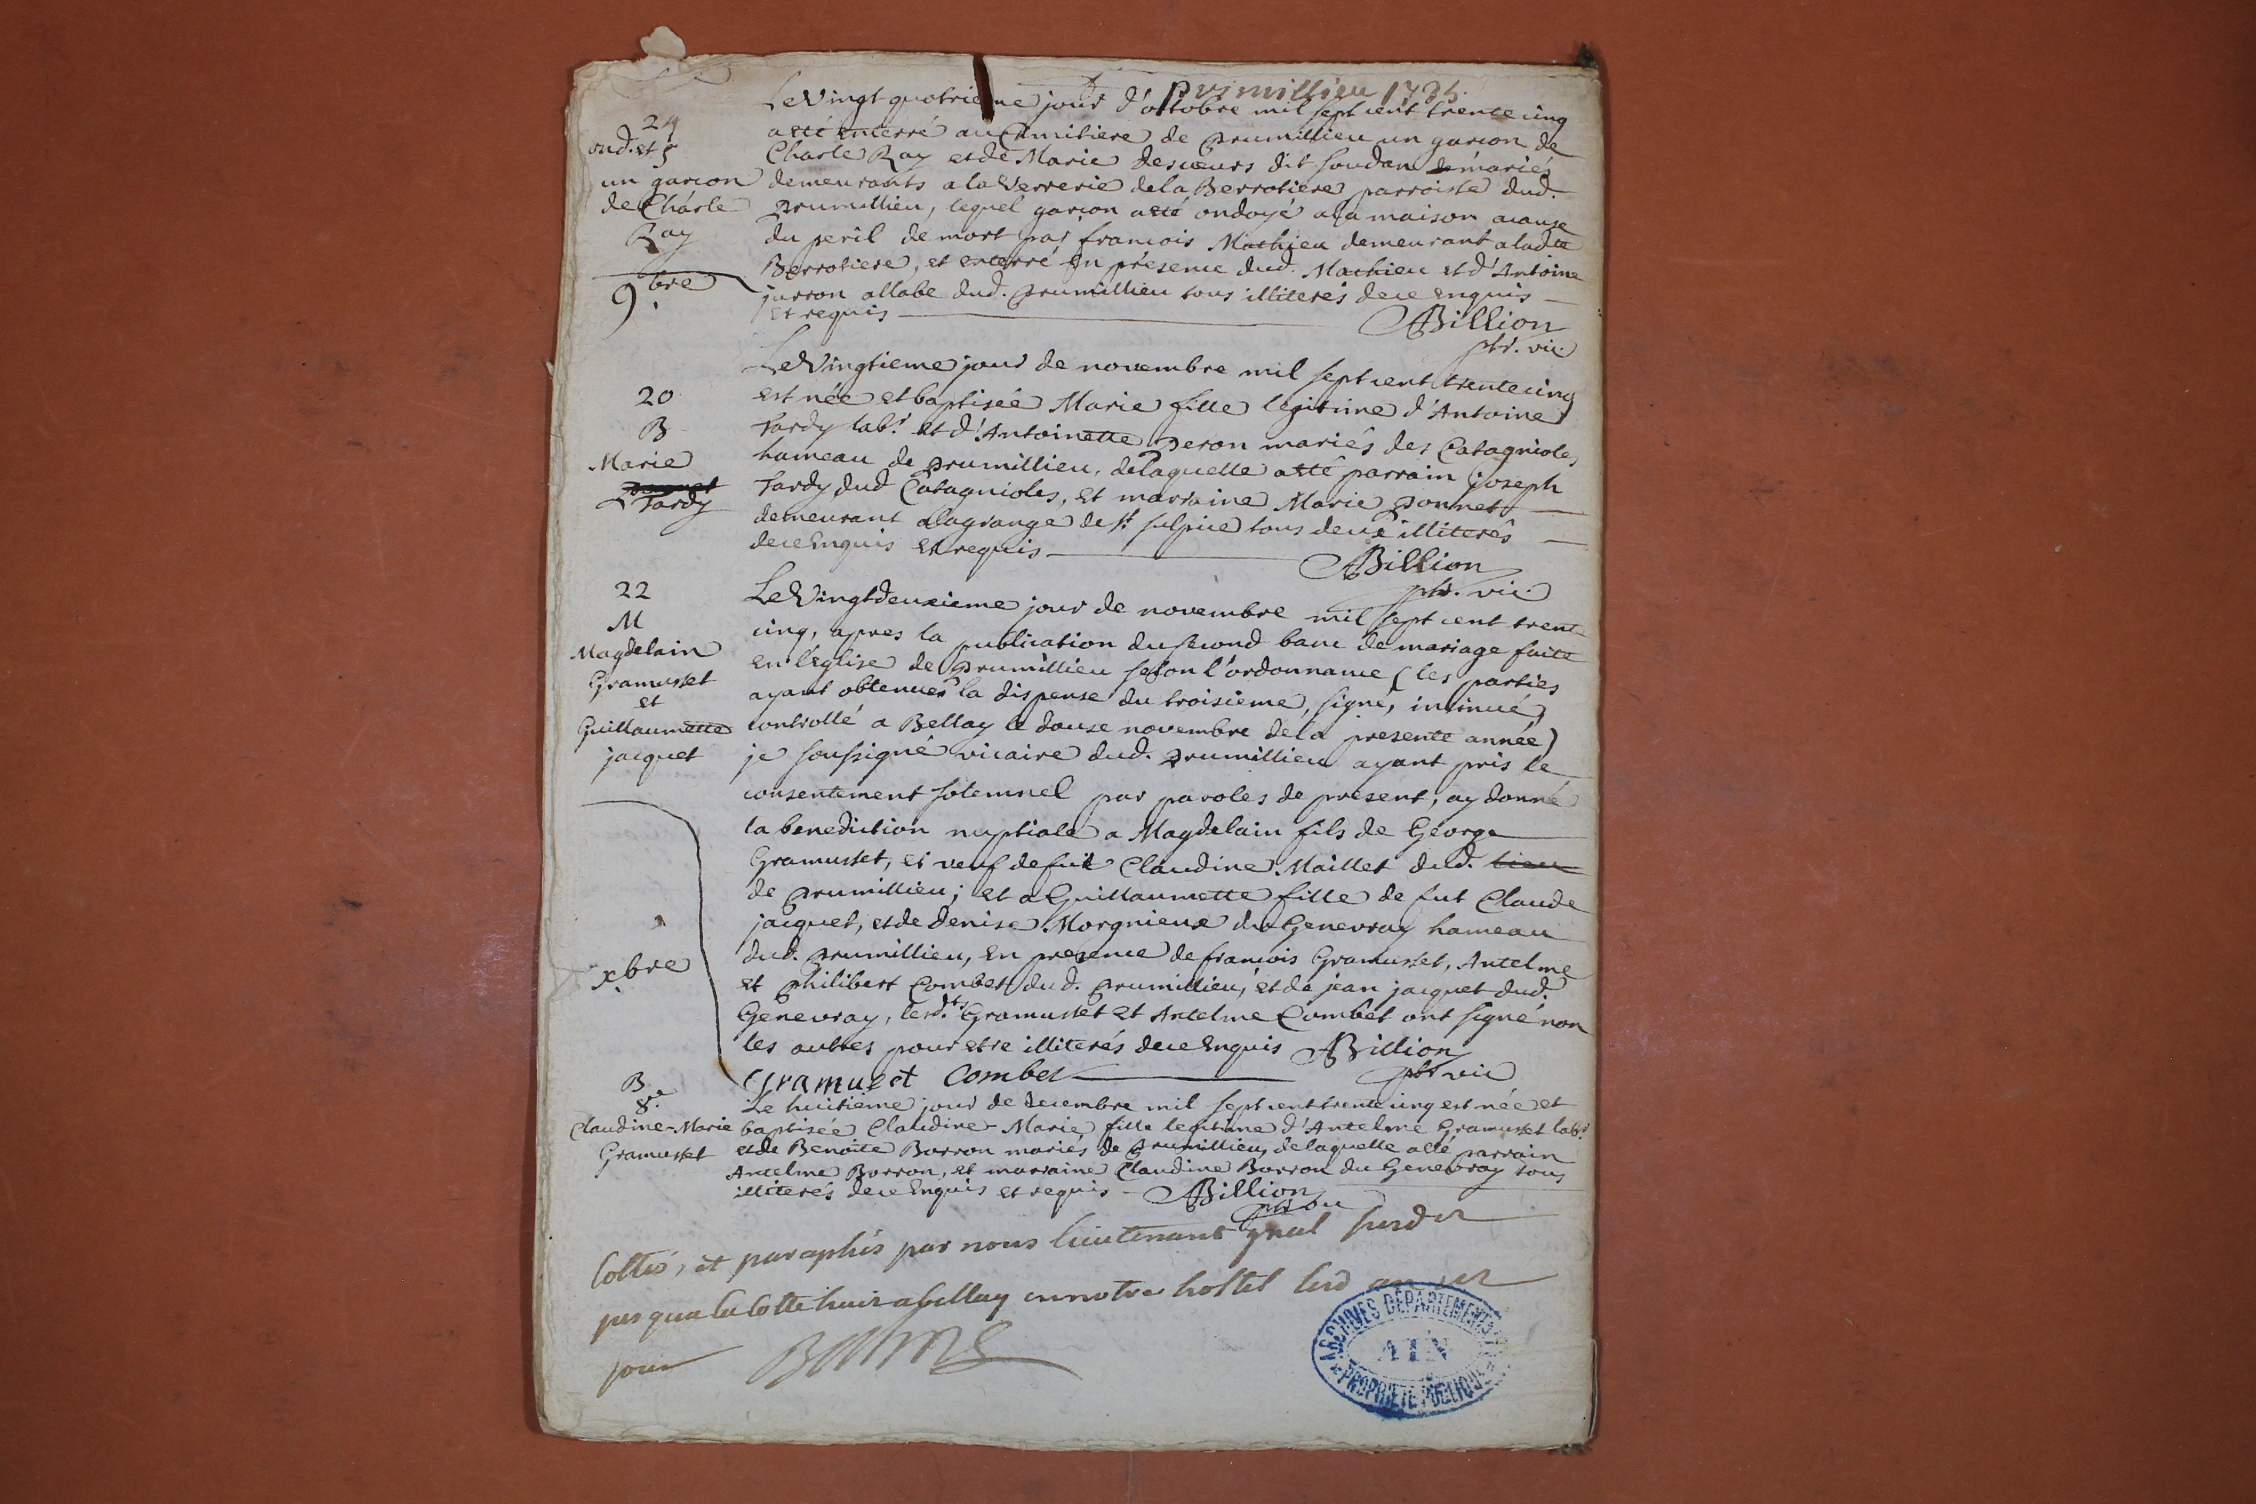 prumillieu 1735.
Le Vingt quatrieme jour d'octobre mil sept cent trente cinq
24
a eté enterré au Cimitiere de prumillieu un garcon de
ond. et S
Charle Ray et de Marie descoeurs dit soudan mariés
un garcon
demeurants a la Verrerie de la Berrotiere parroisse dud.
de Charle
prumillieu, lequel garcon a eté ondoyé a la maison acause
Ray
du peril de mort par francois Mathieu demeurant a ladte
9bre
Berrotiere, et enterré en présence dud. Mathieu et d'Antoine
jurron allabe dud. prumillieu tous illiterés de ce enquis
et requis
Billion
ptr. vic.
Le Vingtieme jour de novembre mil sept cent trente cinq
20
est née et baptisée Marie fille legitime d'Antoine
B
Tardy labr. et d'Antoinette peron mariés des Catagnioles
Marie
hameau de prumillieu, de laquelle a eté parrain joseph
Tardy
Tardy dud Catagnioles, et marraine Marie ponnet
demeurant a la grange de St. sulpice tous deux illiterés
de ce Enquis et requis
Billion
ptr. vic.
22
Le Vingtdeuxieme jour de novembre mil sept cent trente
M
cinq, apres la publication du second banc de mariage faite
Magdelain
en l'église de prumillieu selon l'ordonnance (les parties
Gramusset
ayant obtenues la dispense du troisieme, signé, insinué,
et
Guillaumette
controllé a Bellay le douse novembre de la presente année)
jacquet
je soussigné vicaire dud. prumillieu ayant pris le
consentement solemnel par paroles de present, ay donné
la benediction nuptiale a Magdelain fils de George
Gramusset, et veuf de fut Claudine Maillet dud. lieu
de prumillieu; et a Guillaumette fille de fut Claude
jacquet, et de denise Morgnieux du Genevray hameau
dud. prumillieu, en presence de francois Gramusset, Antelme
xbre
et philibert Combet dud. prumillieu, et de jean jacquet dud.
Genevray, lesd.ts Gramusset et Antelme Combet ont signé non
les autres pour etre illiterés de ce Enquis Billion
ptr vic
Gramuset Combet
B
8e.
Le huitieme jour de decembre mil sept cent trente cinq est née et
Claudine-Marie
baptisée Claudine-Marie fille legitime d'Antelme Gramusset labr.
Gramusset
et de Benoite Borron mariés de prumillieu, de laquelle a eté parrain
Antelme Borron, et marraine Claudine Borron du Genevray tous
illiterés de ce Enquis et requis - Billion
ptr vic
Cottés, et paraphés par nous lieutenant gnal
jusqua la cotte huit a bellay en notre hostel
jour
ARCHIVES DÉPARTEMENTALES
AIN
PROPRIETE PUBLIQUE